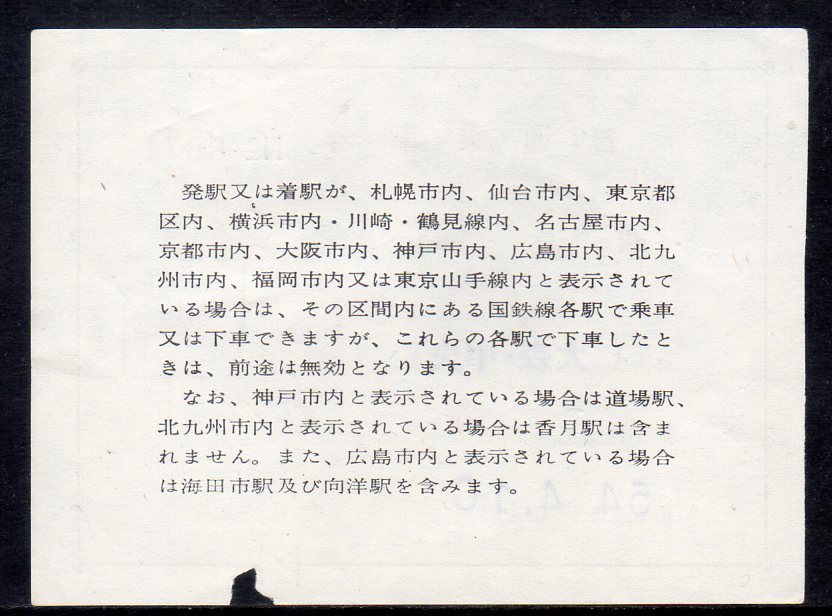 発駅又は着駅が、札幌市内、仙台市内、東京都
区内、横浜市内・川崎・鶴見線内、名古屋市内、
京都市内、大阪市内、神戸市内、広島市内、北九
州市内、福岡市内又は東京山手線内と表示されて
いる場合は、その区間内にある国鉄線各駅で乗車
又は下車できますが、これらの各駅で下車したと
きは、前途は無効となります。
なお、神戸市内と表示されている場合は道場駅、
北九州市内と表示されている場合は香月駅は含ま
れません。また、広島市内と表示されている場合
は海田市駅及び向洋駅を含みます。